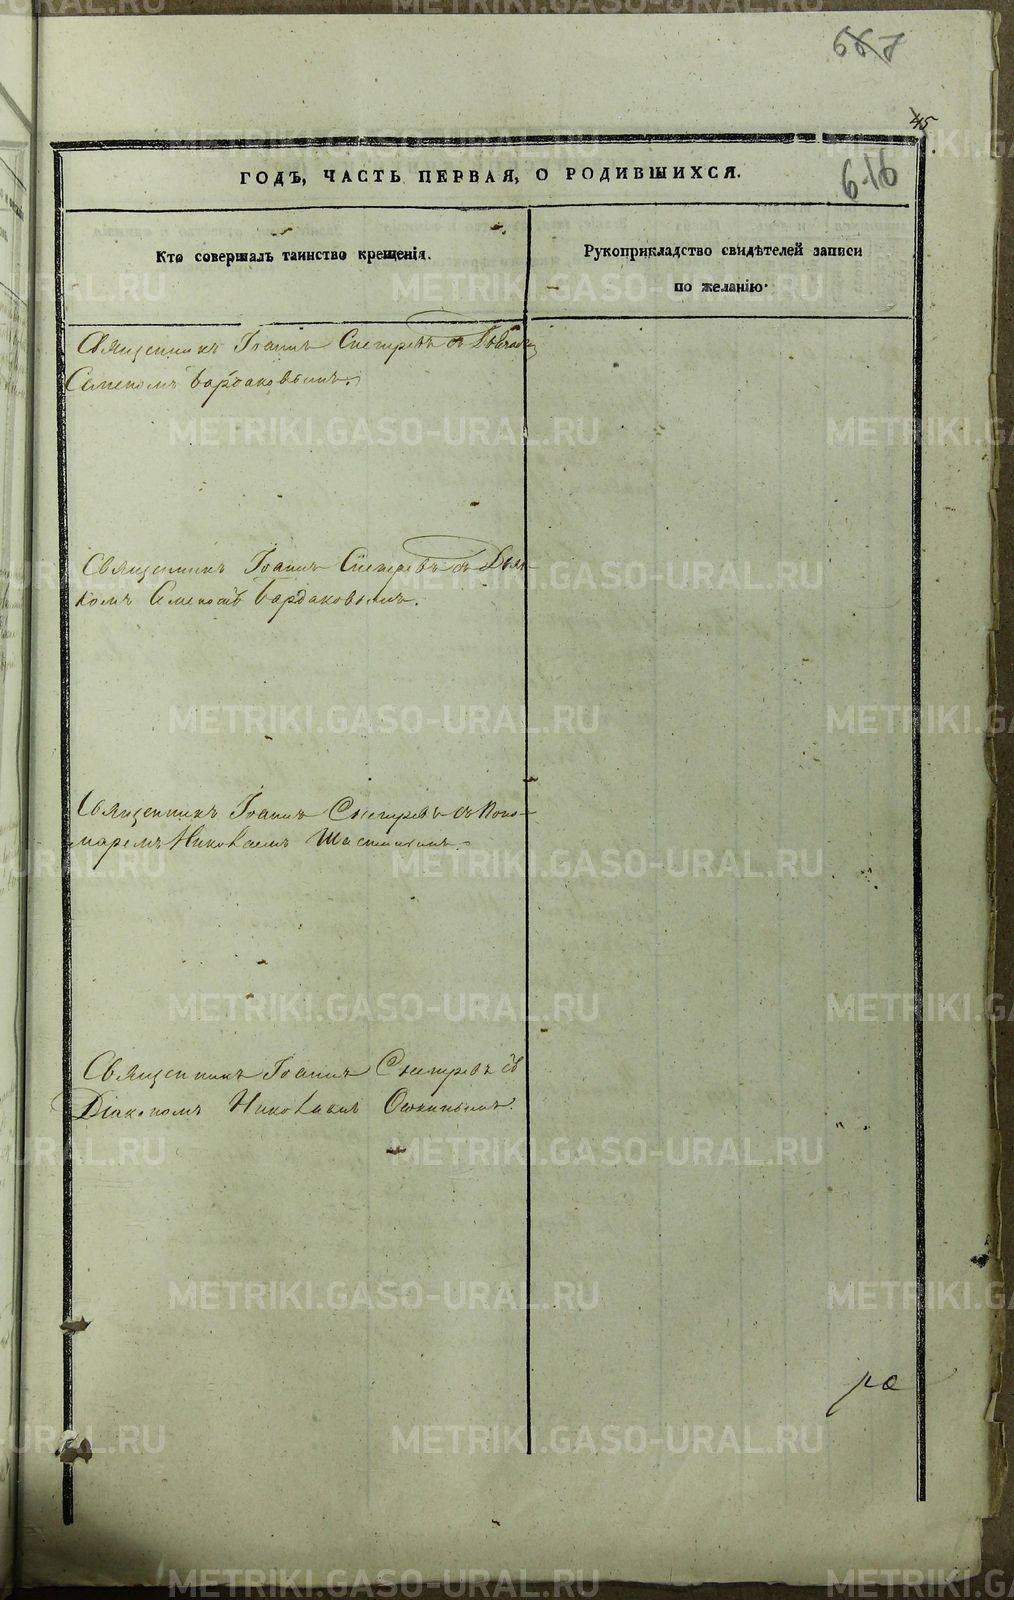 667
45
616
ГОДЪ, ЧАСТЬ ПЕРВАЯ, О РОДИВШИХСЯ.
Кто совершалъ таинство крещенія.
Рукоприкладство свидѣтелей записи
по желанію.
Священникъ Іоаннъ Снегиревъ съ Дьячкомъ
Семеномъ Бардаковымъ.
Священникъ Іоаннъ Снегиревъ съ Дьяч-
комъ Семеномъ Бардаковымъ.
Священникъ Іоаннъ Снегиревъ съ Поно-
маремъ Николаемъ
Священникъ Іоаннъ Снегиревъ съ
Діакономъ Николаемъ
METRIKI.GASO-URAL.RU